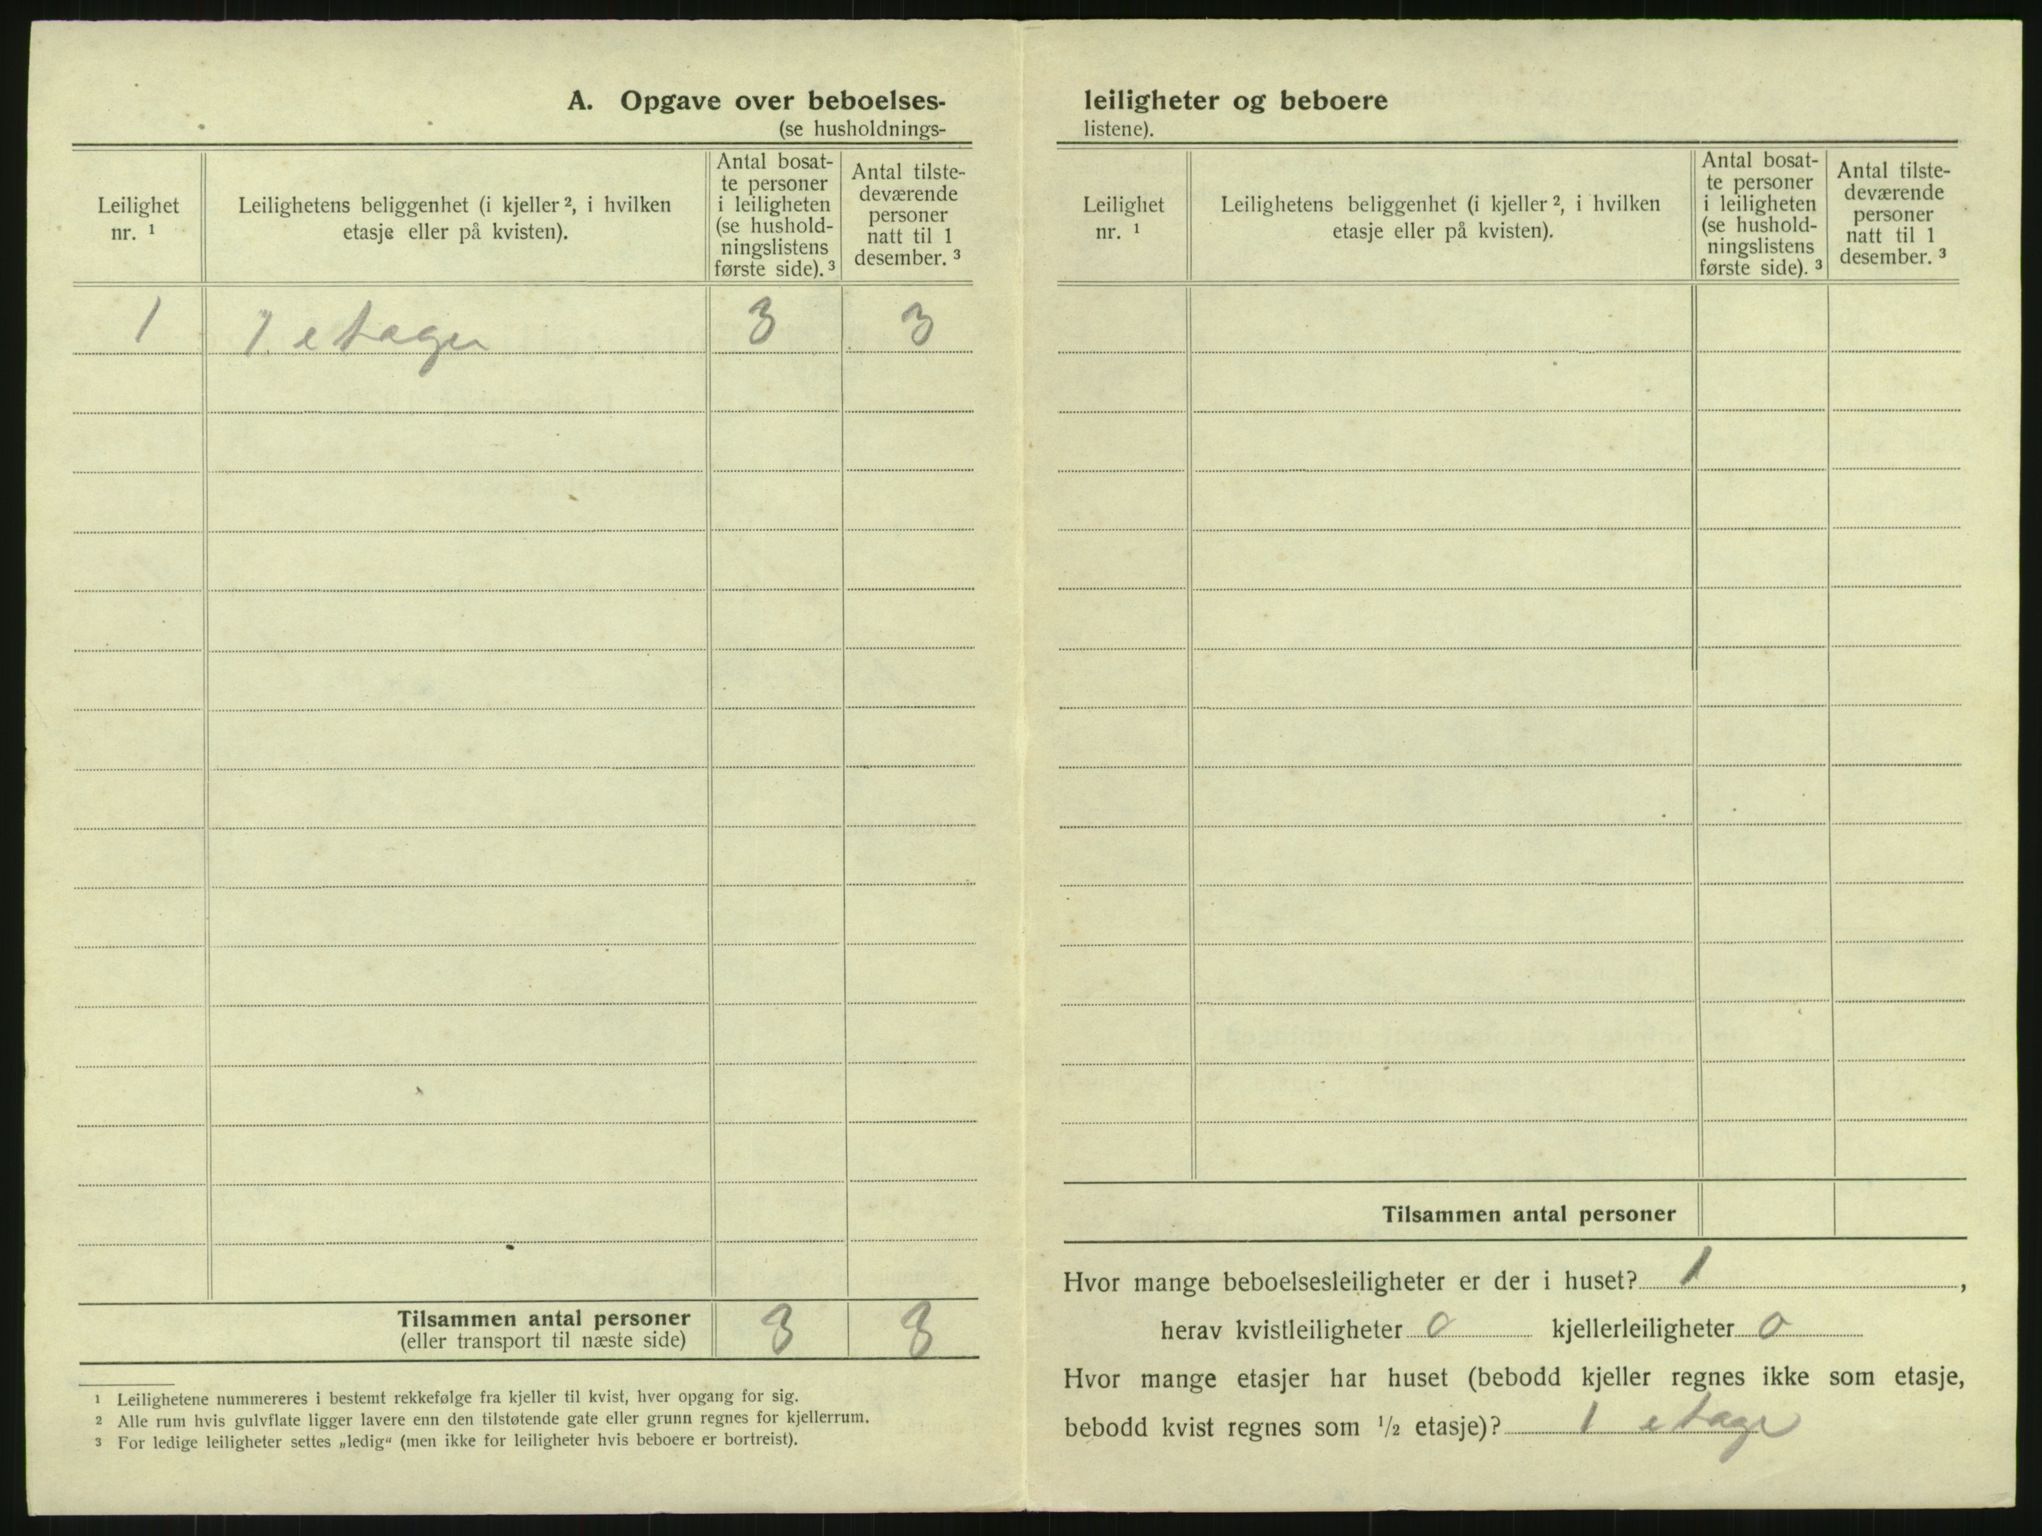 A. Opgave over beboelses-
(se husholdnings-
Leilighet
nr. 1
Leilighetens beliggenhet (i kjeller 2, i hvilken
etasje eller på kvisten).
Antal bosat-
te personer
i leiligheten
(se hushold-
ningslistens
første side). 3
Antal tilste-
deværende
personer
natt til 1
desember. 3
1 1. etager 3 3
Tilsammen antal personer 3 3
(eller transport til næste side)
1 Leilighetene nummereres i bestemt rekkefølge fra kjeller til kvist, hver opgang for sig.
2 Alle rum hvis gulvflate ligger lavere enn den tilstøtende gate eller grunn regnes for kjellerrum.
3 For ledige leiligheter settes „ledig“ (men ikke for leiligheter hvis beboere er bortreist).
leiligheter og beboere
listene).
Leilighet
nr. 1
Leilighetens beliggenhet (i kjeller 2, i hvilken
etasje eller på kvisten).
Antal bosat-
te personer
i leiligheten
(se hushold-
ningslistens
første side). 3
Antal tilste-
deværende
personer
natt til 1
desember. 3
Tilsammen antal personer
Hvor mange beboelsesleiligheter er der i huset? 1,
herav kvistleiligheter 0 kjellerleiligheter 0
Hvor mange etasjer har huset (bebodd kjeller regnes ikke som etasje,
bebodd kvist regnes som 1/2 etasje)? 1 etage